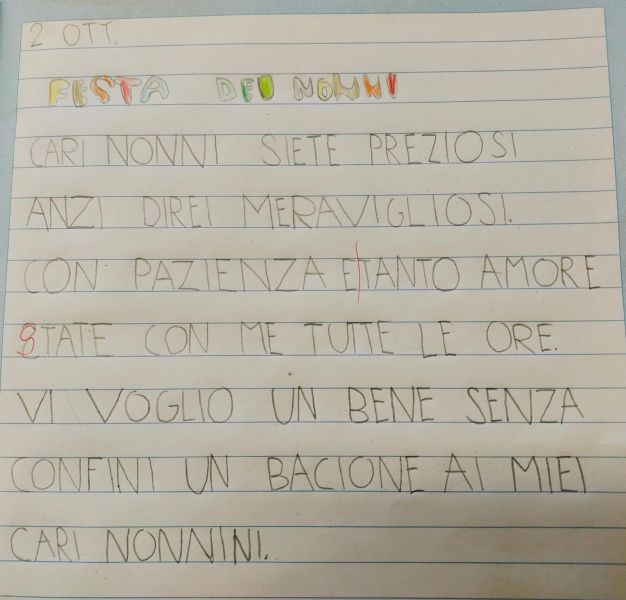 2 OTT.
FESTA DEI NONNI
CARI NONNI SIETE PREZIOSI
ANZI DIREI MERAVIGLIOSI.
CON PAZIENZA E TANTO AMORE
STATE CON ME TUTTE LE ORE.
VI VOGLIO UN BENE SENZA
CONFINI UN BACIONE AI MIEI
CARI NONNINI.